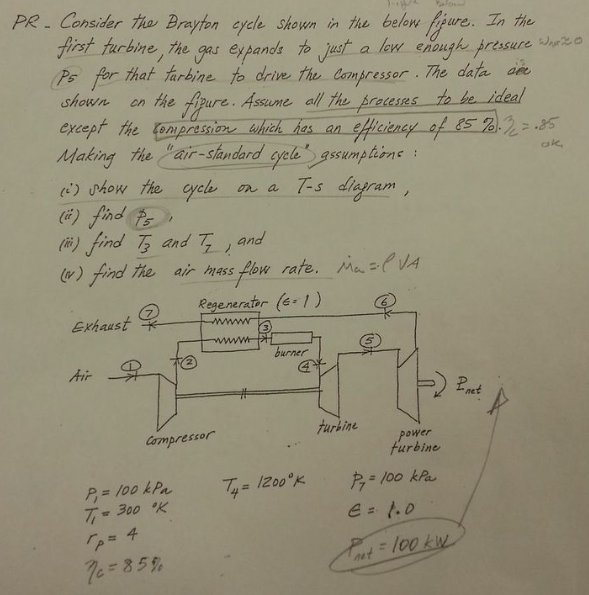 PR - Consider the Brayton cycle shown in the below figure. In the
first turbine, the gas expands to just a low enough pressure
P5 for that turbine to drive the compressor. The data are
shown on the figure. Assume all the processes to be ideal
except the compression which has an efficiency of 85 %. ηc = .85
Making the "air-standard cycle" assumptions :
(i) show the cycle on a T-s diagram,
(ii) find P5,
(iii) find T3 and T7, and
(iv) find the air mass flow rate. ṁa = ρVA
Regenerator (ε=1)
7
6
Exhaust
3
burner
2
4
5
Air
1
Pnet
compressor
turbine
power
turbine
P1 = 100 kPa
T4 = 1200°K
P7 = 100 kPa
T1 = 300 °K
ε = 1.0
rp = 4
Pnet = 100 kW
ηc = 85%